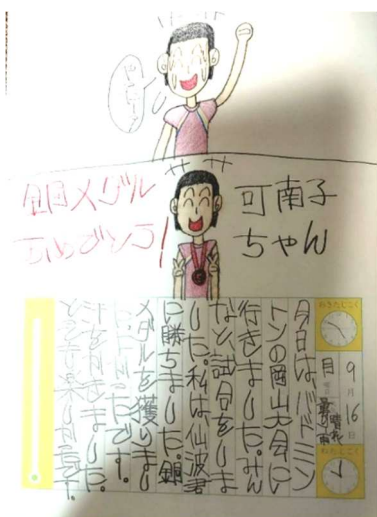 やったー
銅メダル
おめでとう!
可南子
ちゃん
おきたじこく
9月16日
ねたじこく
今日は、バドミン
トンの岡山大会に
行きました。みん
なと試合をしま
した。私は、仙波君
に勝ちました。銅
メダルを獲りまし
た。
汗をかきました。
とても楽しかったです。